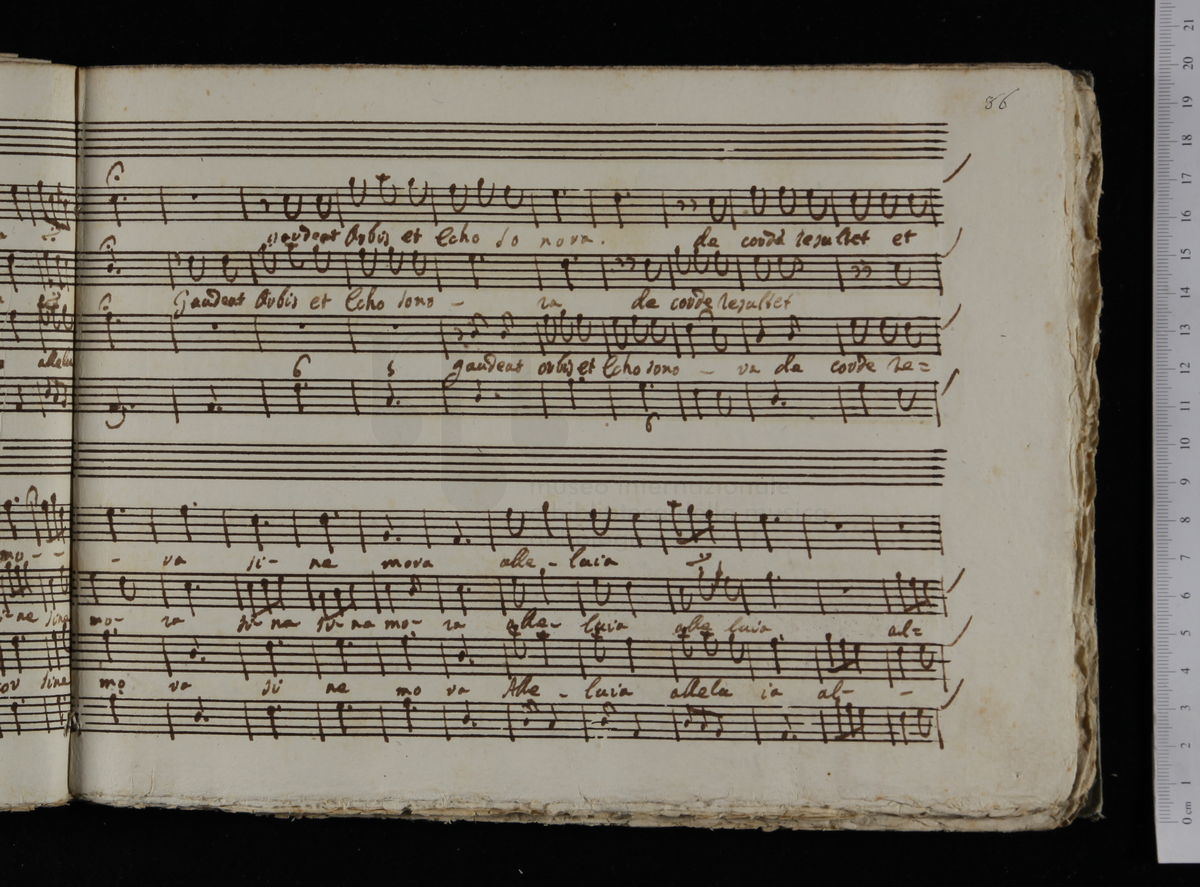 86
gaudeat Orbis et Echo so nora. de corde resultet et
Gaudeat Orbis et Echo sono - ra de corde resultet
allelu
6 5 gaudeat orbis et Echo sono - ra de corde re=
6
museo internazionale
mo - - - ra si- ne mora alle - luia
ne sine mo- ra si- ne si- ne mo- ra alle- luia alle luia al=
sine mo ra si ne mo ra Alle - luia allelu ia al- -
21
20
19
18
17
16
15
14
13
12
11
10
9
8
7
6
5
4
3
2
1
0 cm